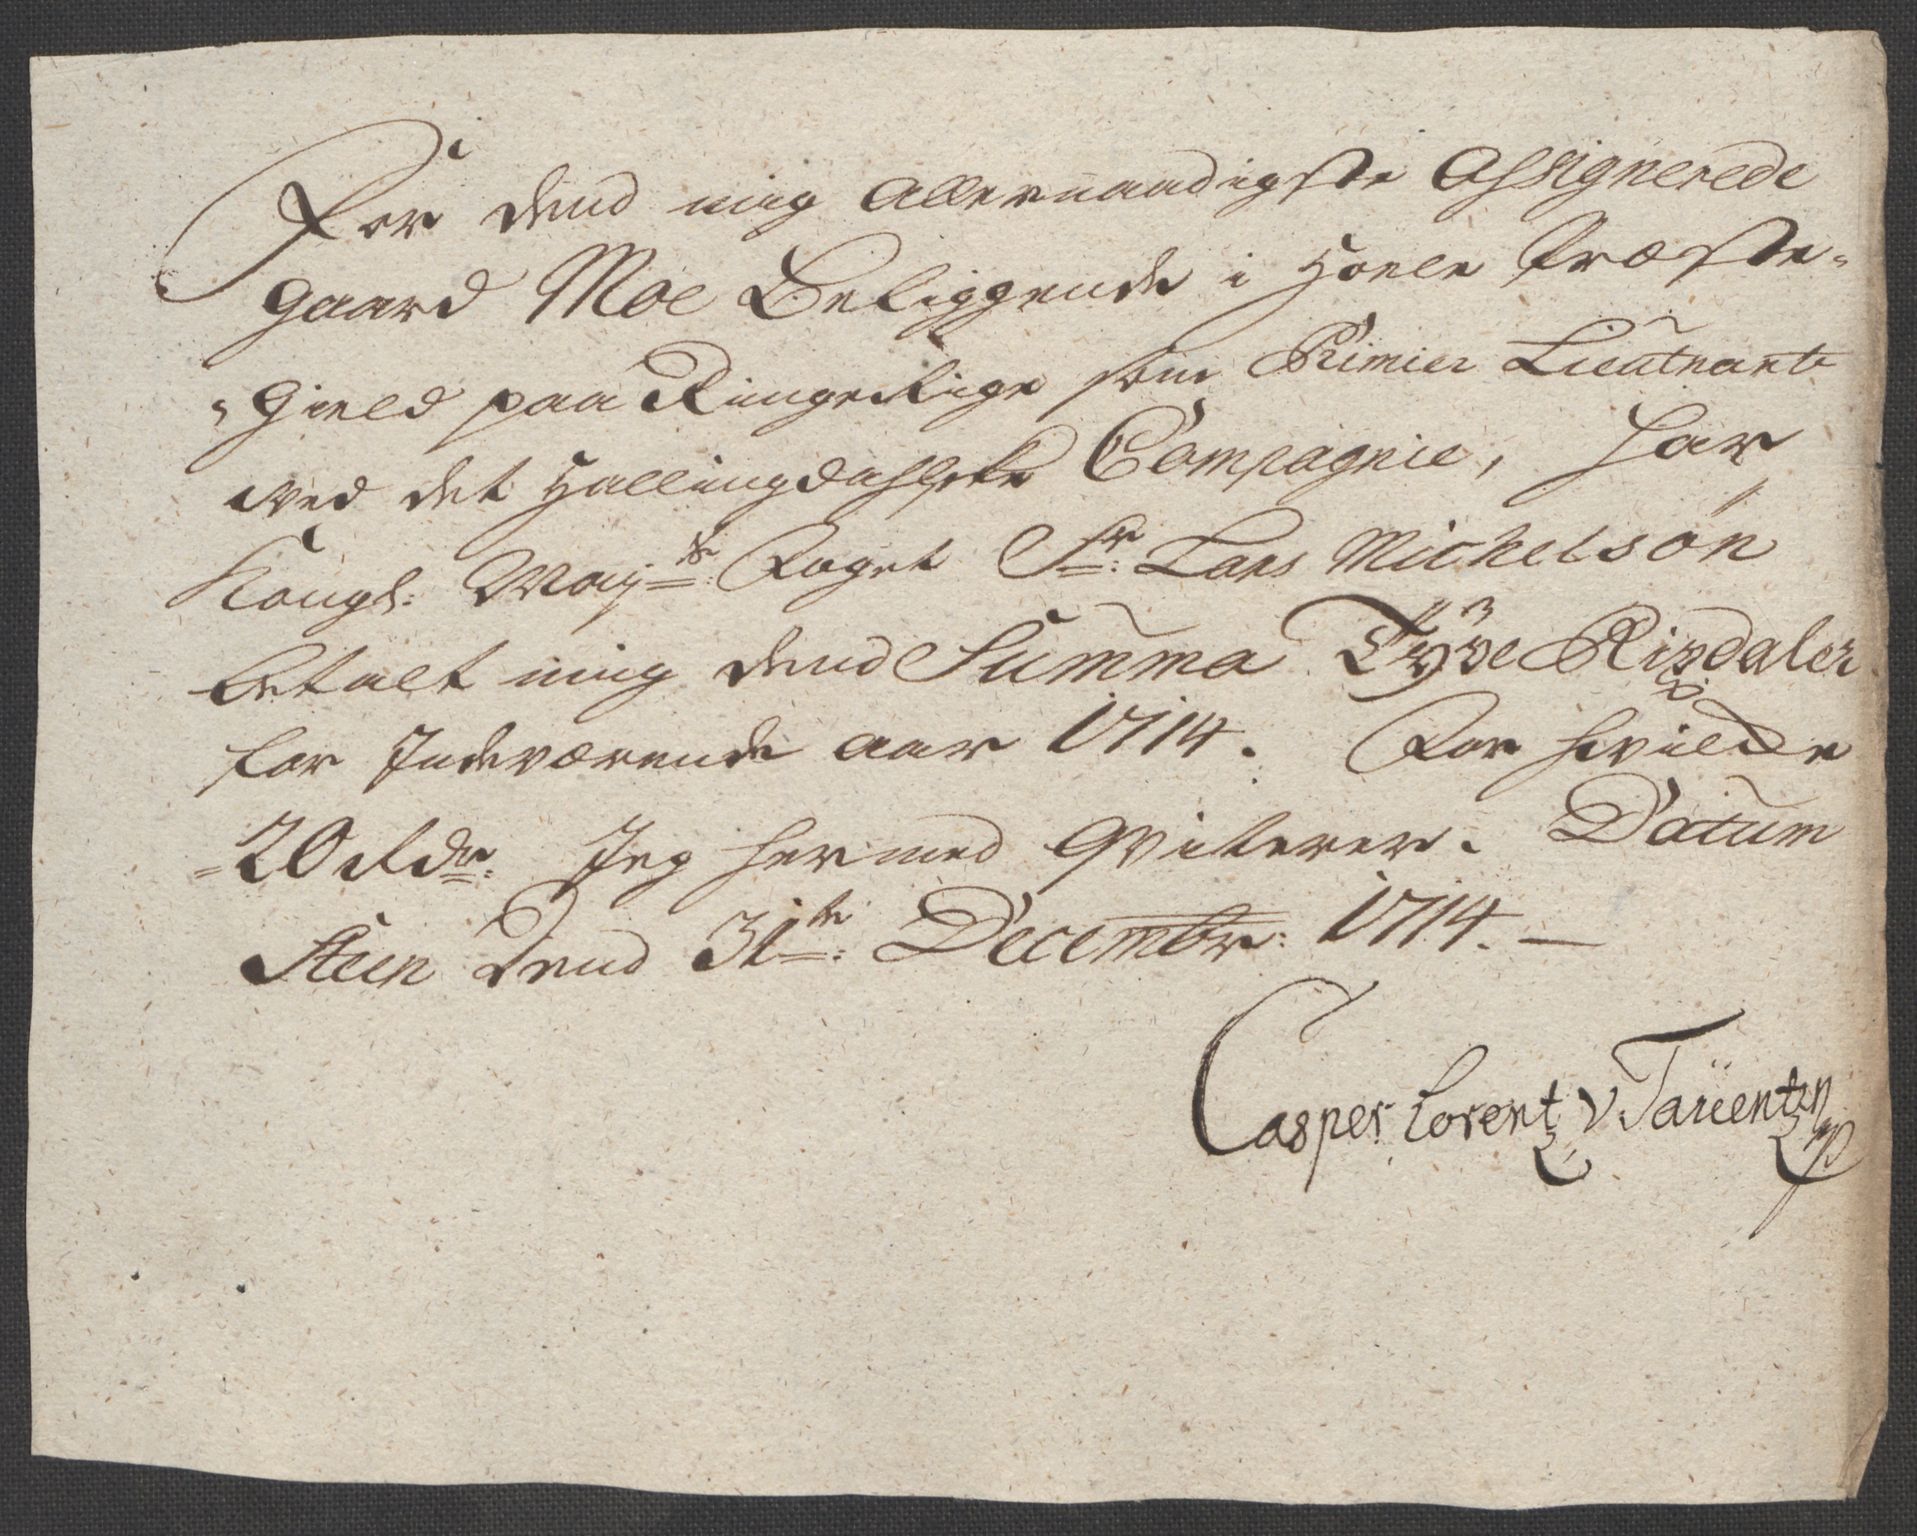 For dend mig Allernaadigste Assignerede
Gaard Moe Beliggende i Hoele Præste-
gield paa Ringerige som Primier Lieutnant
ved det Hallingdahlske Compagnie, har
Kongl: Maj:ts Foget Sr: Lars Michelsøn
betalt mig dend Summa Tyve Rixdaler
for Indeværende aar 1714. For hvilcke
20 Rdr: Jeg hermed qviterer. Datum
Steen Dend 31te: Decembr: 1714. —
Casper Lorentz v Taruentzen